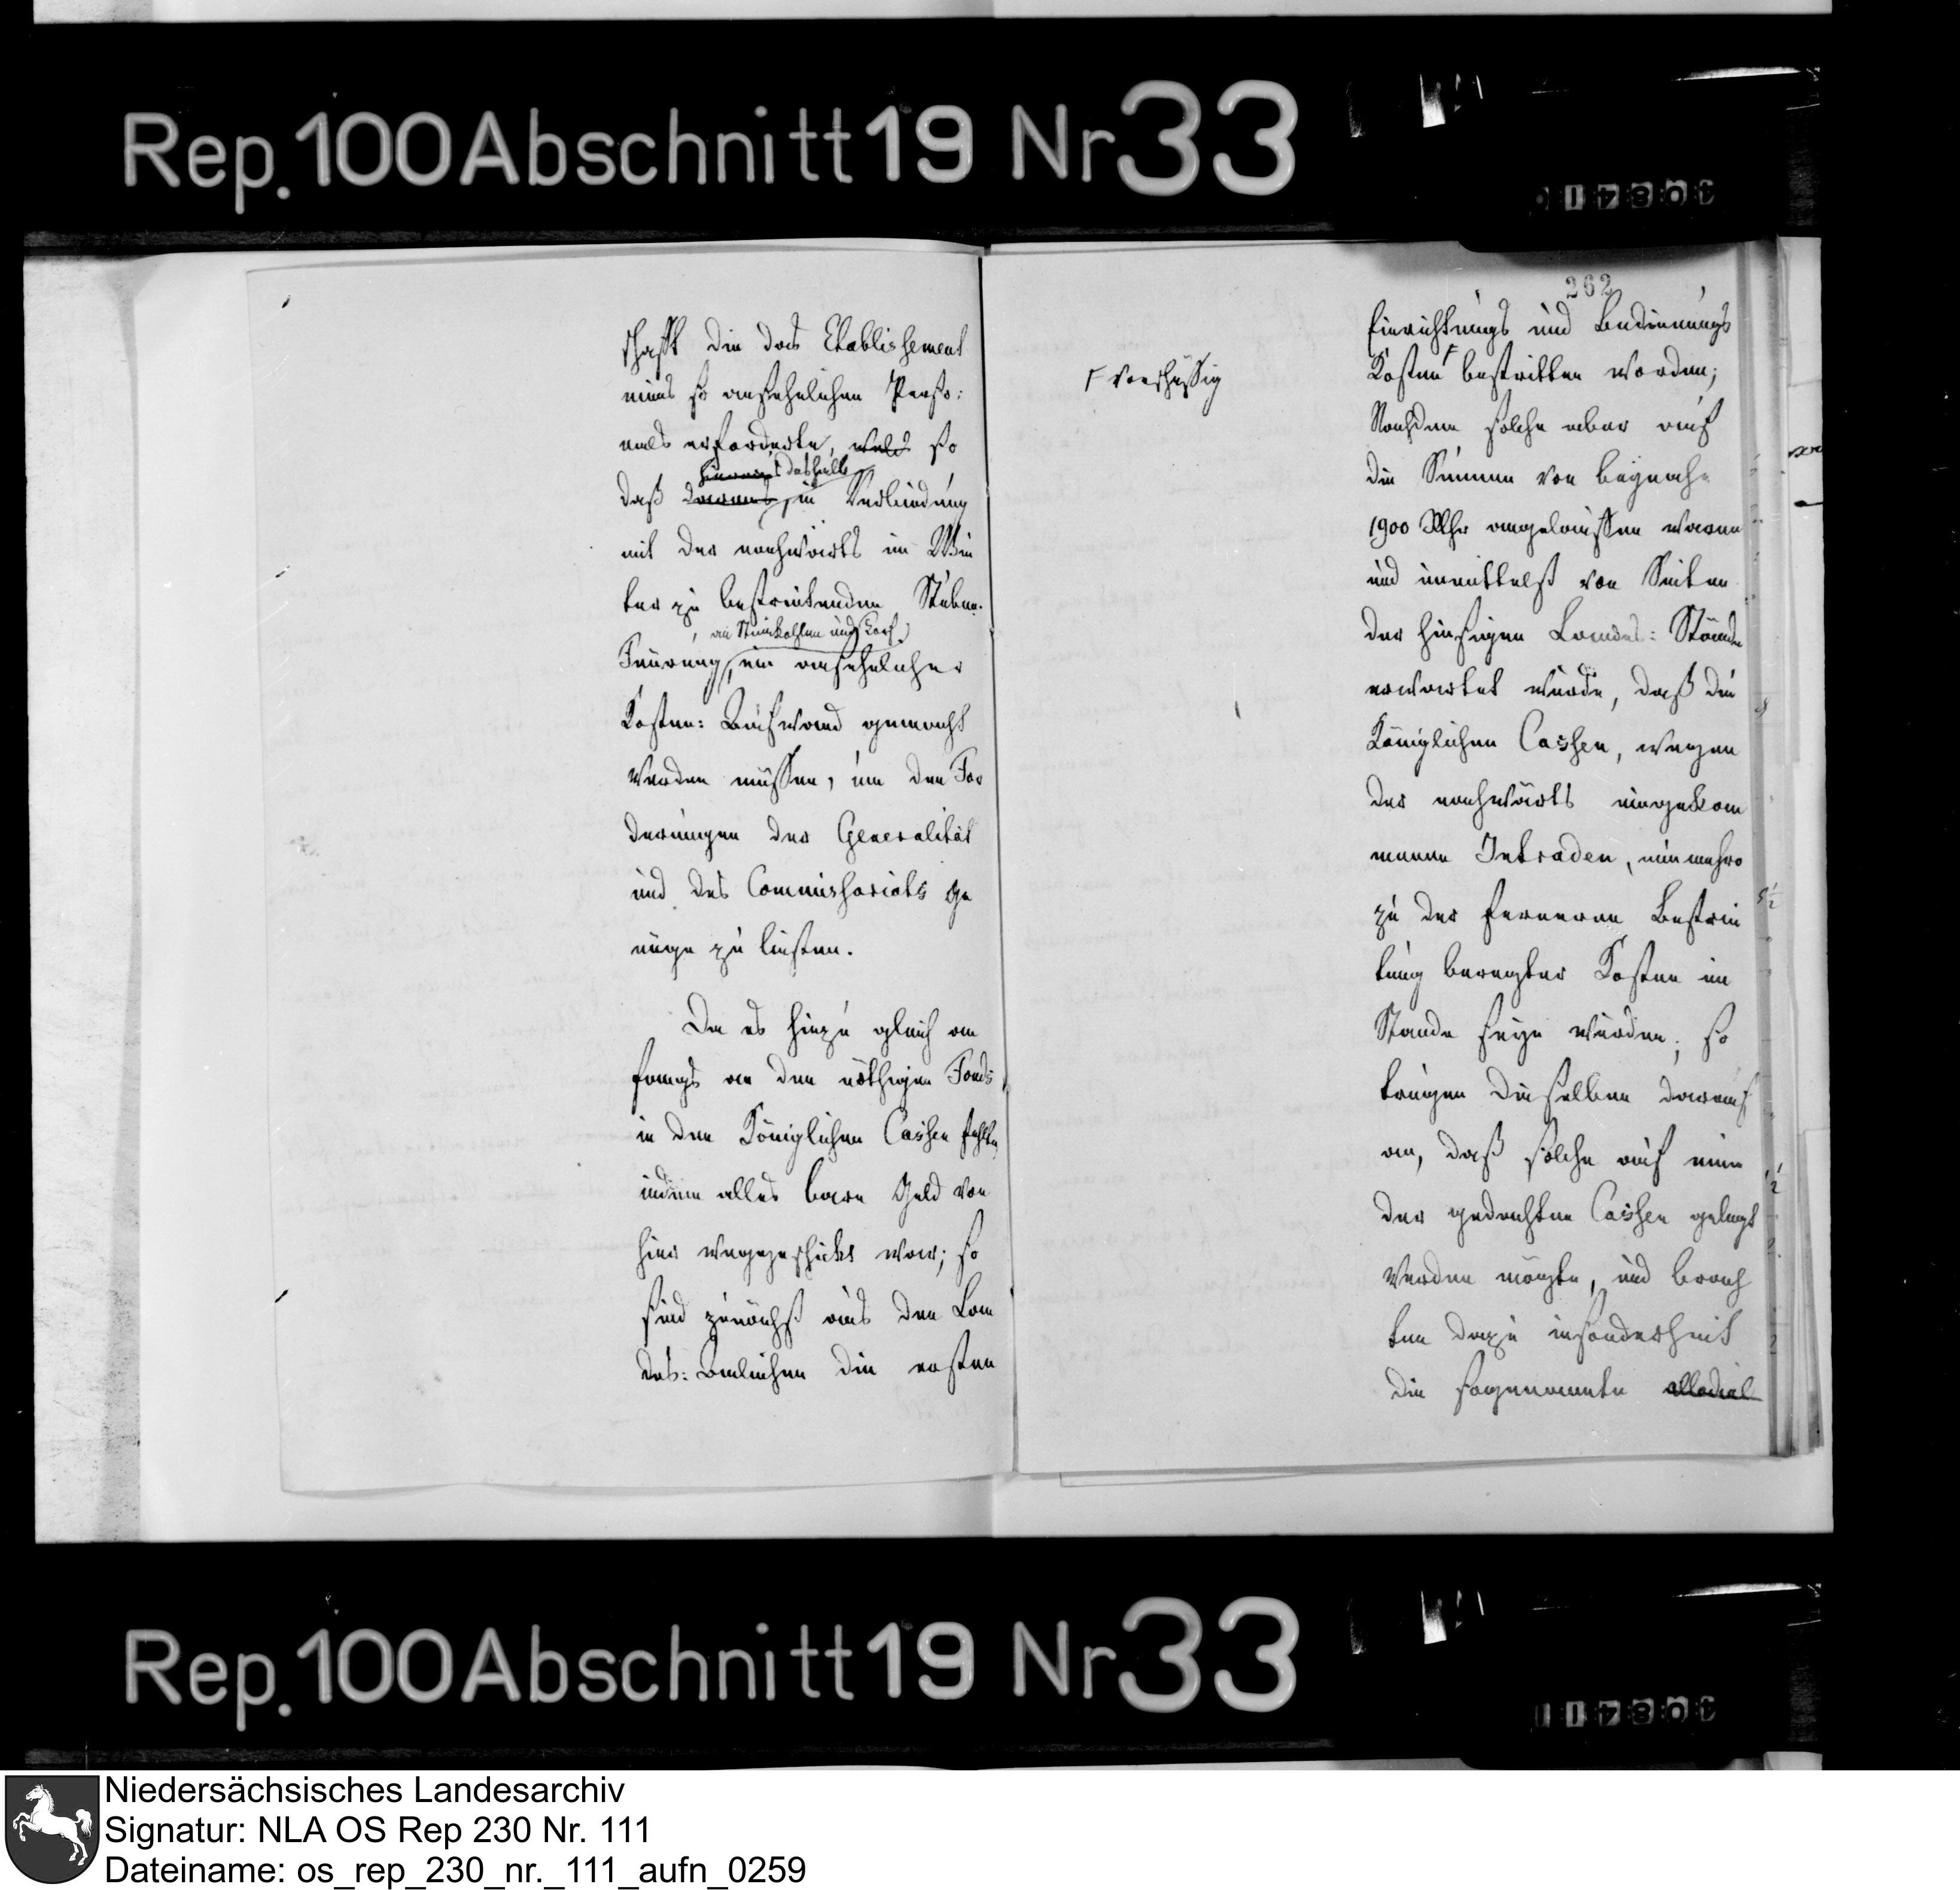 Rep. 100 Abschnitt 19 Nr 33
schafft die das Etablissement
eines so ansehnlichen Perso:
nals erforderte, so
hieraus deshalb
daß daraus, in Verbindung
mit der nachwärts im Win
ter zu bestreitenden Stuben-
, an Steinkohlen und Torf
Feurung, ein ansehnlicher
Kosten: Aufwand gemacht
werden müssen, um den For
derungen der Generalität
und des Commissariats ge
nüge zu leisten.
Da es hiezu gleich an
fangs an den nöthigen Fonds
in den Königlichen Cassen fehlte
indem alles bare Geld von
hier weggeschickt war; so
sind zunächst aus den Lan
des: Anleihen die ersten
262
Einrichtungs und Bedienungs
Kosten Γ bestritten worden;
Γ vorschüssig
Nachdem solche aber auf
die Summe von beynahe
1900 Rthr angelauffen waren
und inmittelst von Seiten
der hiesigen Landes: Stände
erwartet wurde, daß die
Königlichen Cassen, wegen
der nachwärts eingekom
menen Intraden, nunmehro
zu der ferneren Bestrei
tung beregter Kosten im
Stande seyn würden; so
trugen dieselben darauf
an, daß solche auf eine
der gedachten Cassen gelegt
werden mögte, und brach
ten dazu insonderheit
die sogenannte allodial
Rep. 100 Abschnitt 19 Nr 33
Niedersächsisches Landesarchiv
Signatur: NLA OS Rep 230 Nr. 111
Dateiname: os_rep_230_nr._111_aufn_0259